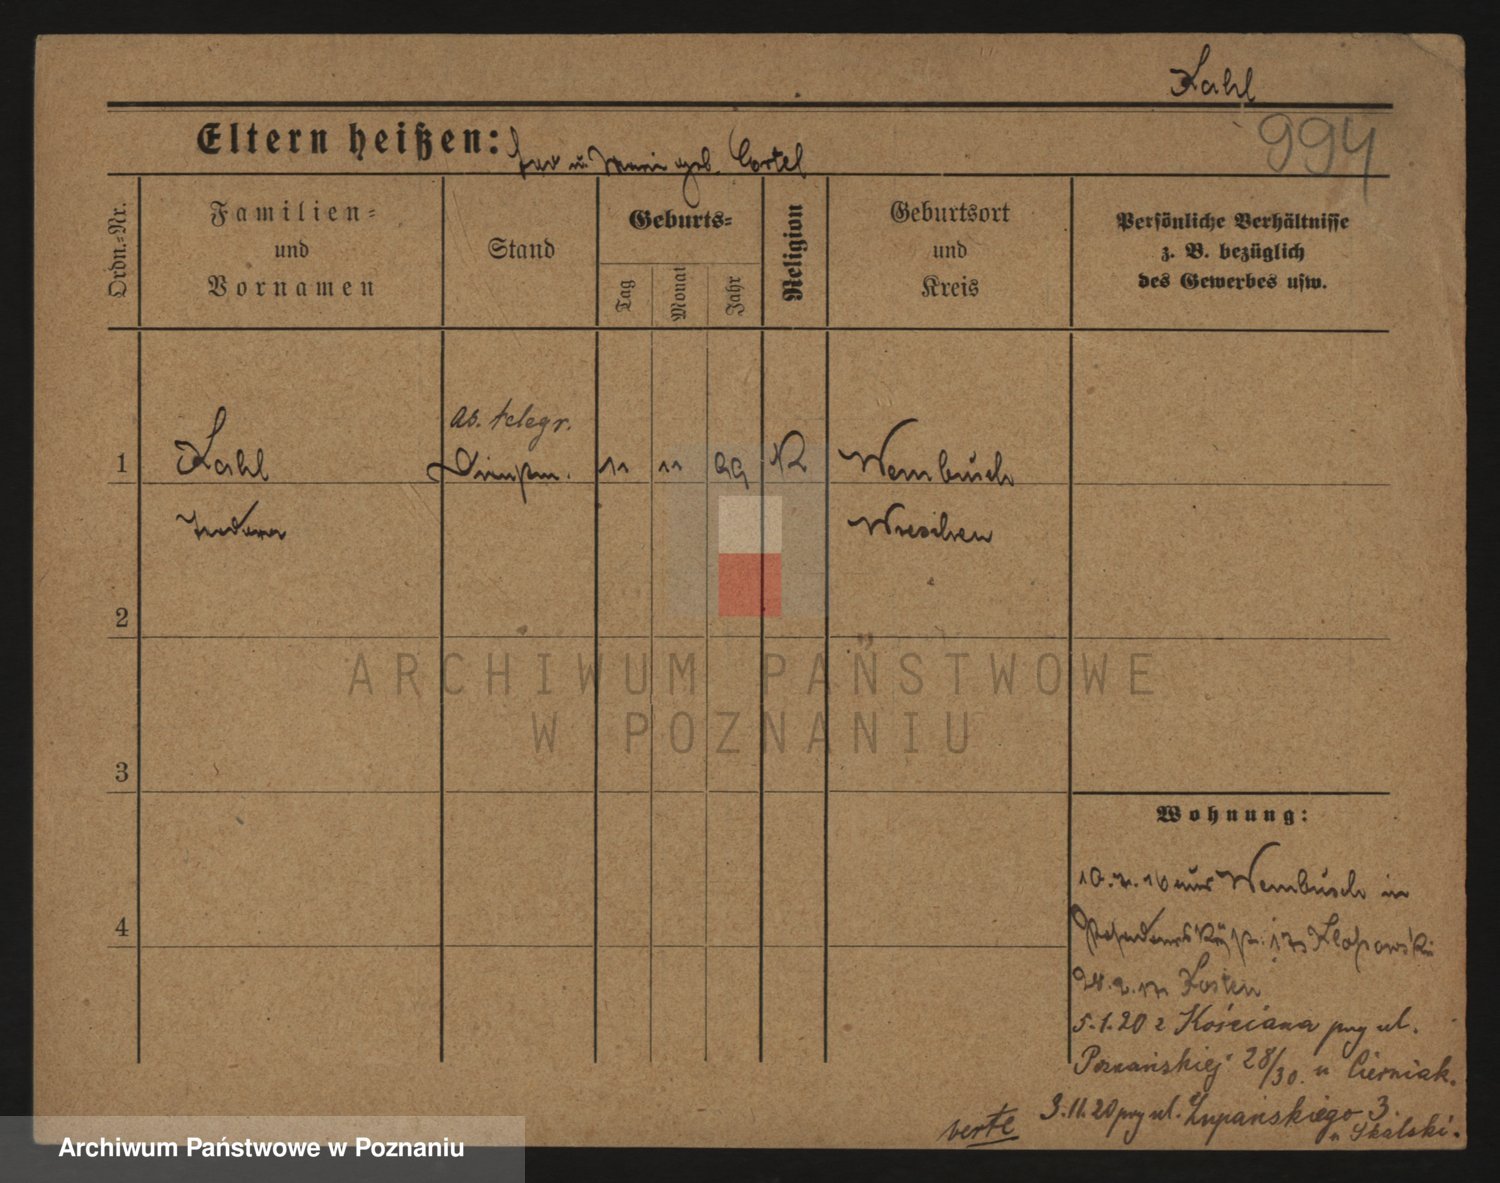 Kahl
994
Eltern heißen: u. geb.
Ordn.-Nr.
Familien-
und
Vornamen
Stand
Geburts-
Tag
Monat
Jahr
Religion
Geburtsort
und
Kreis
Persönliche Verhältnisse
z. B. bezüglich
des Gewerbes usw.
as. telegr.
1 Kahl 11 11 99 Wembusch
Wreschen
2
3
4
Wohnung:
aus Wembusch in
Kosten
5.1.20 z Kościana przy ul.
Poznańskiej 28/30. u Cierniak.
3.11.20 przy ul. Łupańskiego 3.
u Skalski.
verte
ARCHIWUM PAŃSTWOWE
W POZNANIU
Archiwum Państwowe w Poznaniu